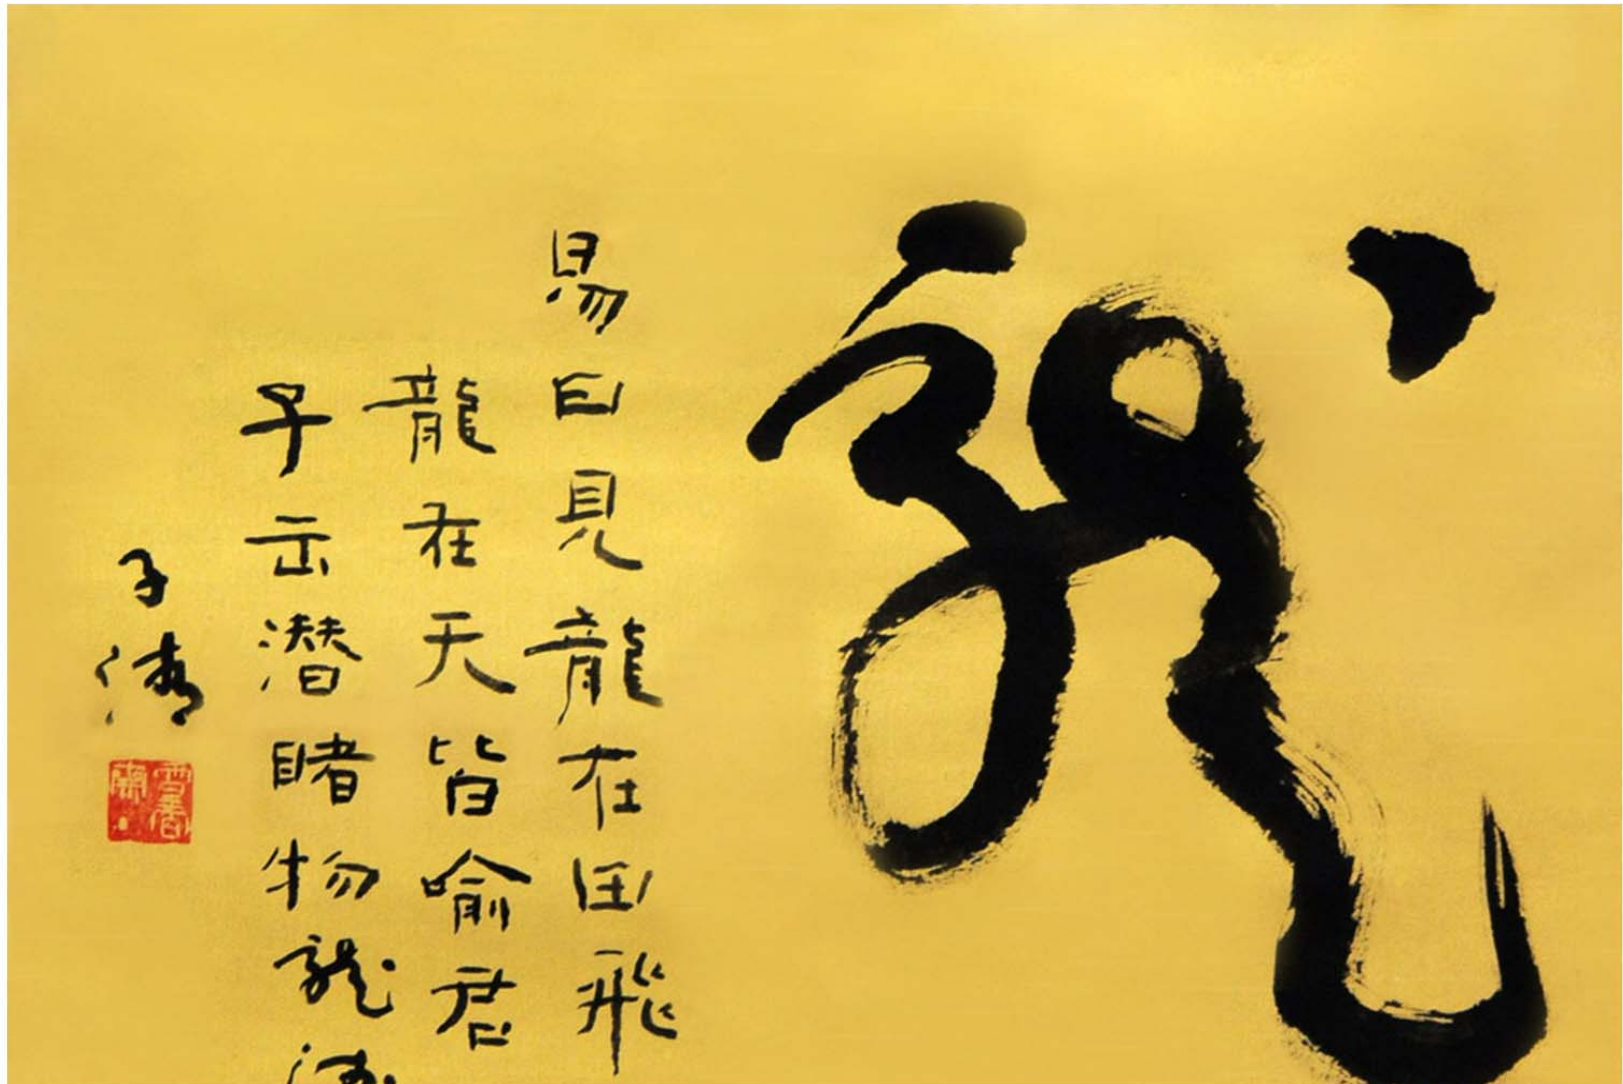 龍
易曰見龍在田飛
龍在天皆喻君
子云潜睹物龍
子清